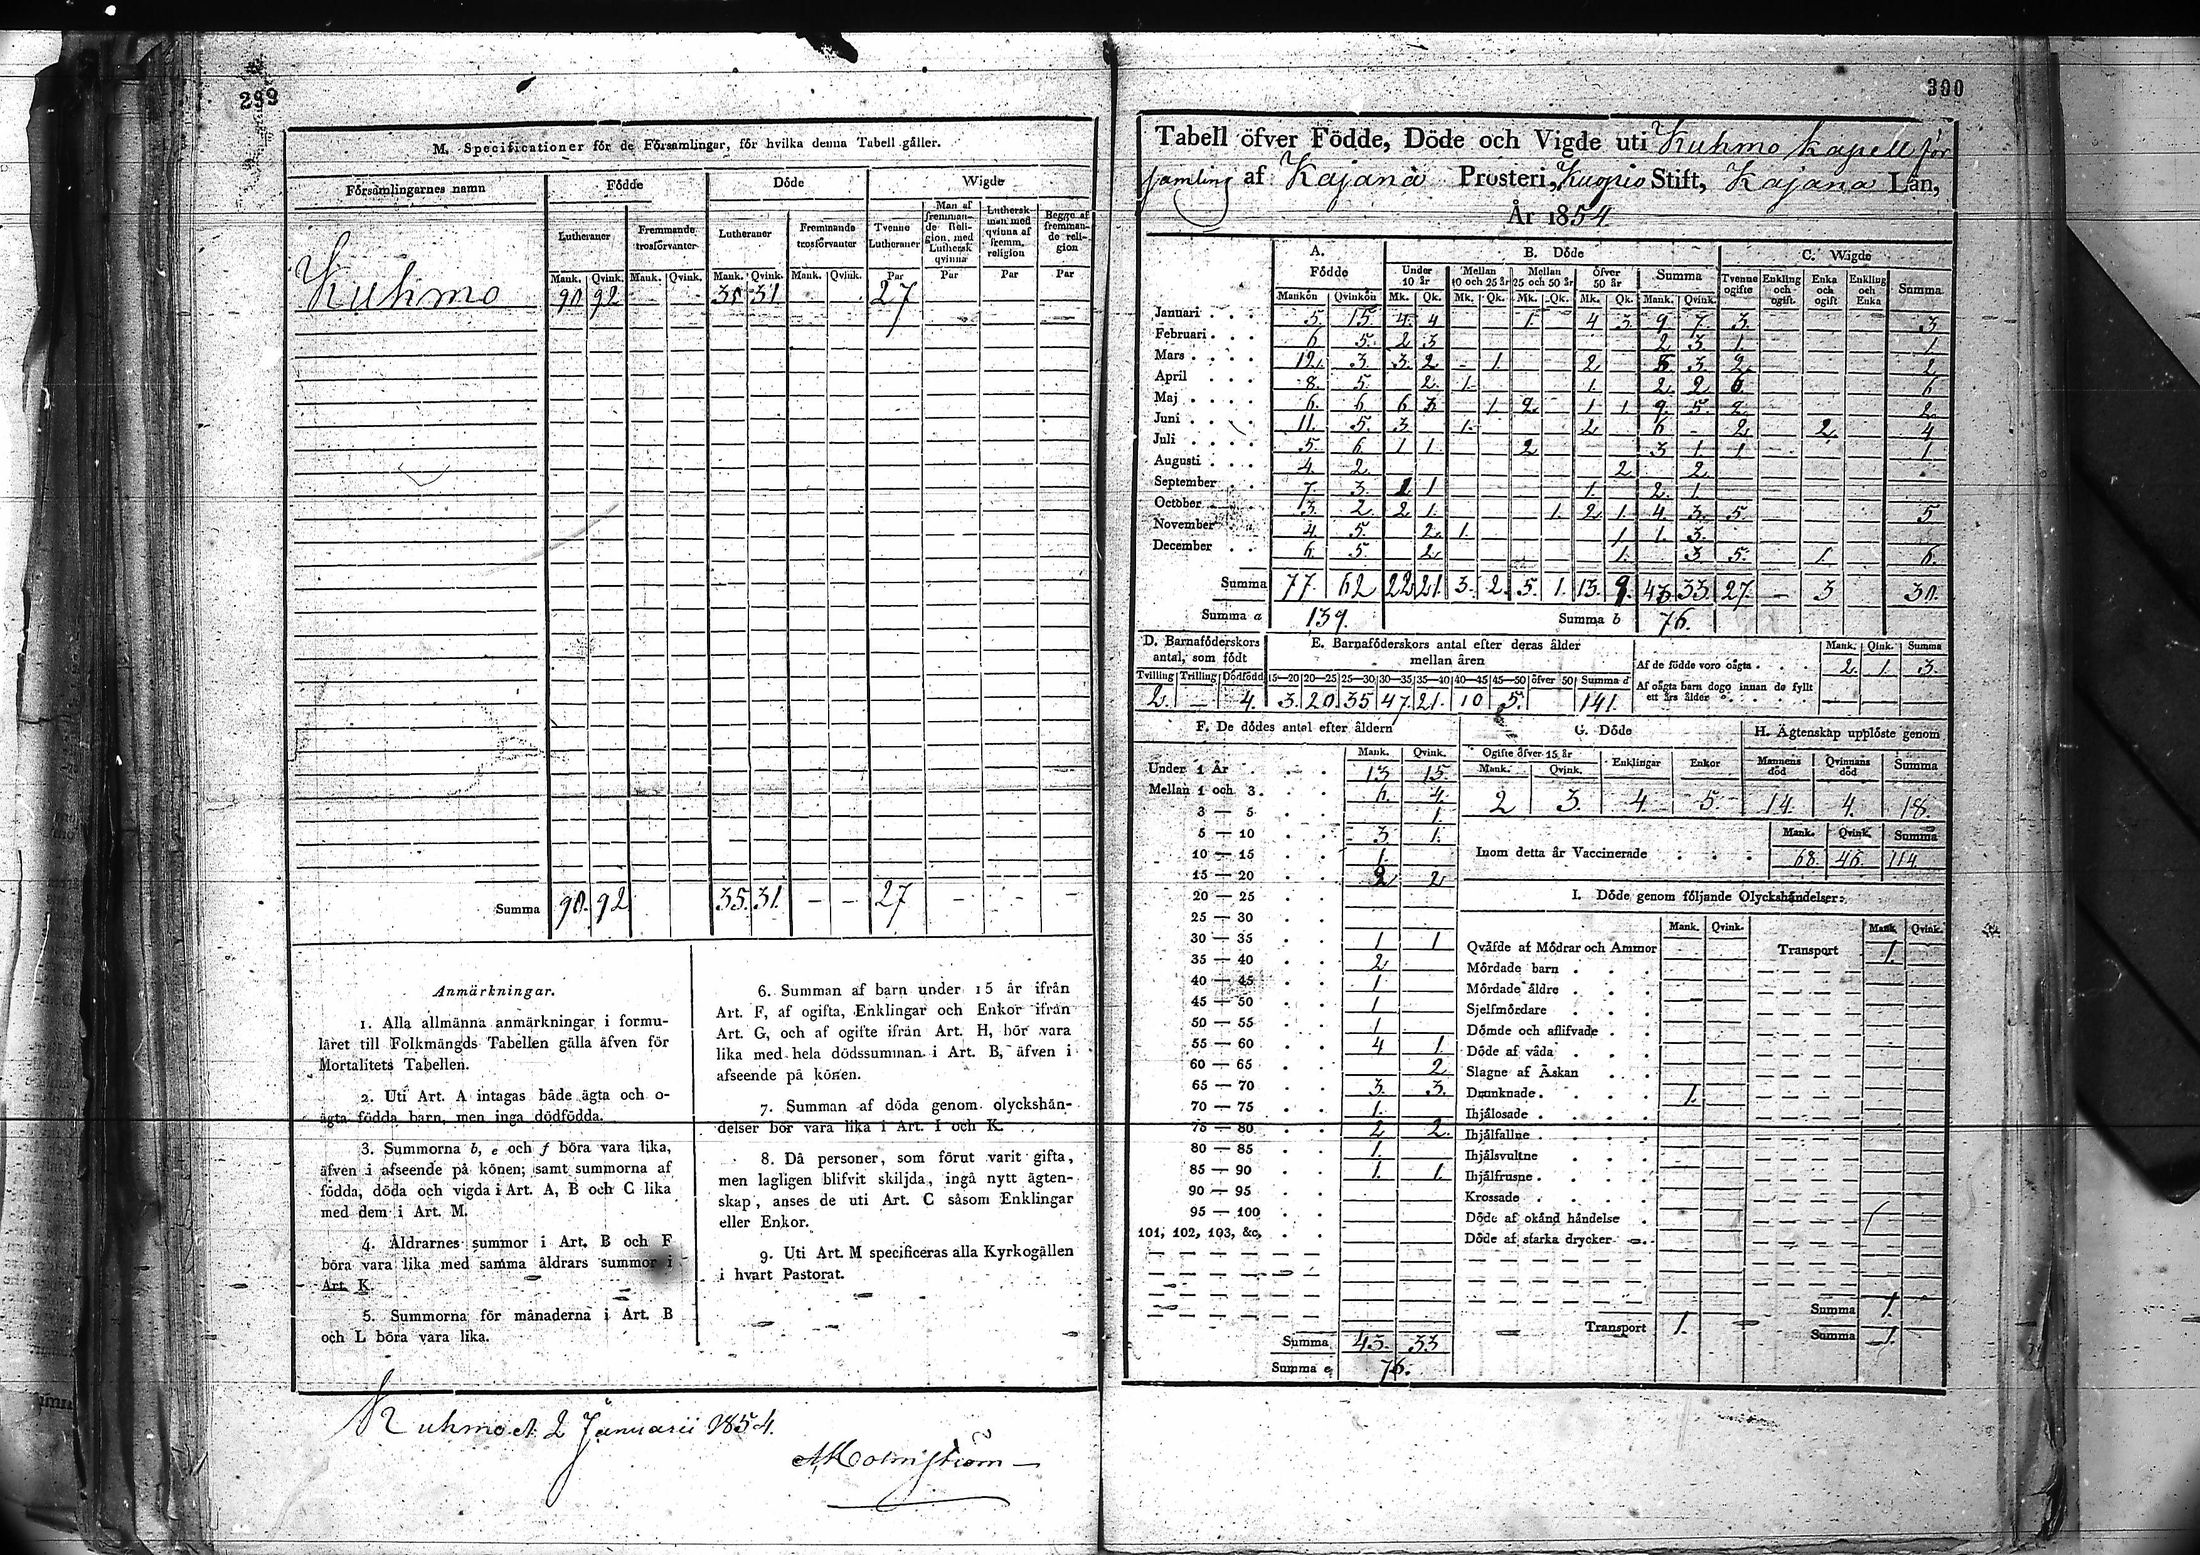 299
M. Specificationer för de Församlingar, för hvilka denna Tabell gäller.
Församlingarnes namn Födde Döde Wigde
Lutheraner Fremmande trosförvanter Lutheraner Fremmande trosförvanter Tvenne Lutheraner Man af fremmande Religion med Luthersk qvinna Luthersk man med qvinna af fremm. religion Begge af fremmande religion
Mank. Qvink. Mank. Qvink. Mank. Qvink. Mank. Qvink. Par Par Par Par
Kuhmo 90 92 - - 35 31 - - 27
Summa 90. 92 35. 31. - - 27 - - -
Anmärkningar.
1. Alla allmänna anmärkningar i formu-
läret till Folkmängds Tabellen gälla äfven för
Mortalitets Tabellen.
2. Uti Art. A intagas både ägta och o-
ägta födda barn, men inga dödfödda.
3. Summorna b, e och f böra vara lika,
äfven i afseende på könen; samt summorna af
födda, döda och vigda i Art. A, B och C lika
med dem i Art. M.
4. Åldrarnes summor i Art. B och F
böra vara lika med samma åldrars summor i
Art. K.
5. Summorna för månaderna i Art. B
och L böra vara lika.
6. Summan af barn under 15 år ifrån
Art. F, af ogifta, Enklingar och Enkor ifrån
Art. G, och af ogifte ifrån Art. H, bör vara
lika med hela dödssumman i Art. B, äfven i
afseende på könen.
7. Summan af döda genom olyckshän-
delser bör vara lika i Art. I och K.
8. Då personer, som förut varit gifta,
men lagligen blifvit skiljda, ingå nytt ägten-
skap, anses de uti Art. C såsom Enklingar
eller Enkor.
9. Uti Art. M specificeras alla Kyrkogällen
i hvart Pastorat.
Kuhmo d. 2 Januarii 1854.
300
Tabell öfver Födde, Döde och Vigde uti Kuhmo kapell för
samling af Kajana Prosteri, Kuopio Stift, Kajana Län,
År 1854.
A. Födde B. Döde C. Wigde
Under 10 år Mellan 10 och 25 år Mellan 25 och 50 år Öfver 50 år Summa Tvenne ogifte Enkling och ogift. Enka och ogift Enkling och Enka Summa
Mankön Qvinkön Mk. Qk. Mk. Qk. Mk. Qk. Mk. Qk. Mank. Qvink.
Januari 5. 15. 4. 4 1. 4 3. 9 7. 3. 3
Februari 6 5. 2 3 2 3 1. 1
Mars 12. 3. 3. 2 - 1. 2 5 3 2. 2
April 8. 5. 2. 1. 1. 2 2 6 6
Maj 6. 6 6 3. 1. 2. 1 1. 9. 5. 2. 2.
Juni 11. 5. 3. 1. 2 6 - 2. 2. 4
Juli 5. 6. 1 1. 2 3 1. 1. 1
Augusti 4. 2. 2. 2.
September 7. 3. 1 1 1. 2. 1.
October 13. 2. 2. 1. 1. 2. 1. 4. 3. 5. 5
November 4. 5. 2. 1. 1 1. 3.
December 6. 5. 2. 1. 3 5. 1. 6.
Summa 77. 62 22 21. 3. 2. 5. 1. 13. 9. 43 33. 27. - 3 30.
Summa a 139. Summa b 76.
D. Barnaföderskors antal, som födt
Tvilling Trilling Dödfödd
2. - 4.
E. Barnaföderskors antal efter deras ålder
mellan åren
15—20 20—25 25—30 30—35 35—40 40—45 45—50 öfver 50 Summa d
3. 20. 35 47. 21. 10 5. 141.
Mank. Qink. Summa
Af de födde voro oägta . . . 2. 1. 3.
Af oägta barn dogo innan de fyllt
ett års ålder — — —
F. De dödes antal efter åldern
Mank. Qvink.
Under 1 År 13 15.
Mellan 1 och 3. 6. 4.
3 — 5 1.
5 — 10 3. 1.
10 — 15 1.
15 — 20 2 2
20 — 25
25 — 30
30 — 35 1 1
35 — 40 2
40 — 45 1.
45 — 50 1
50 — 55 1
55 — 60 4 1.
60 — 65 2
65 — 70 3. 3.
70 — 75 1.
75 — 80 2 2.
80 — 85 1.
85 — 90 1. 1.
90 — 95
95 — 100
101, 102, 103, &c.
Summa 43. 33
Summa e 76.
G. Döde
Ogifte öfver 15 år Enklingar Enkor
Mank. Qvink.
2 3. 4. 5.
H. Ägtenskap upplöste genom
Mannens död Qvinnans död Summa
14. 4. 18.
Mank. Qvink. Summa
Inom detta år Vaccinerade 68. 46. 114.
I. Döde genom följande Olyckshändelser:
Mank. Qvink. Mank. Qvink.
Qväfde af Mödrar och Ammor Transport 1.
Mördade barn
Mördade äldre
Sjelfmördare
Dömde och aflifvade
Döde af våda
Slagne af Åskan
Drunknade 1.
Ihjälosade
Ihjälfallne
Ihjälsvultne
Ihjälfrusne
Krossade
Döde af okänd händelse
Döde af starka drycker
Summa 1.
Transport 1. Summa 1.